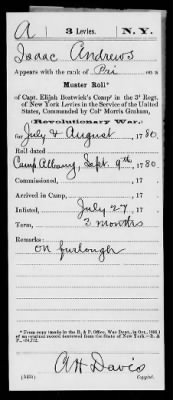 A | 3 Levies. | N.Y.
Isaac Andrews
Appears with the rank of Pri on a
Muster Roll*
of Capt. Elijah Bostwick's Comp'y in the 3d Regt.
of New York Levies in the Service of the United
States, Commanded by Col° Morris Graham,
(Revolutionary War.)
for July & August, 1780.
Roll dated
Camp Albany, Sept. 9th, 1780.
Commissioned, , 17
Arrived in Camp, , 17
Inlisted, July 27, 17
Term, 3 months
Remarks:
on furlough
*From copy (made in the R. & P. Office, War Dept., in Oct.,
of an original record borrowed from the State of New York.—R. &
P.,
A H Davis
Copyist.